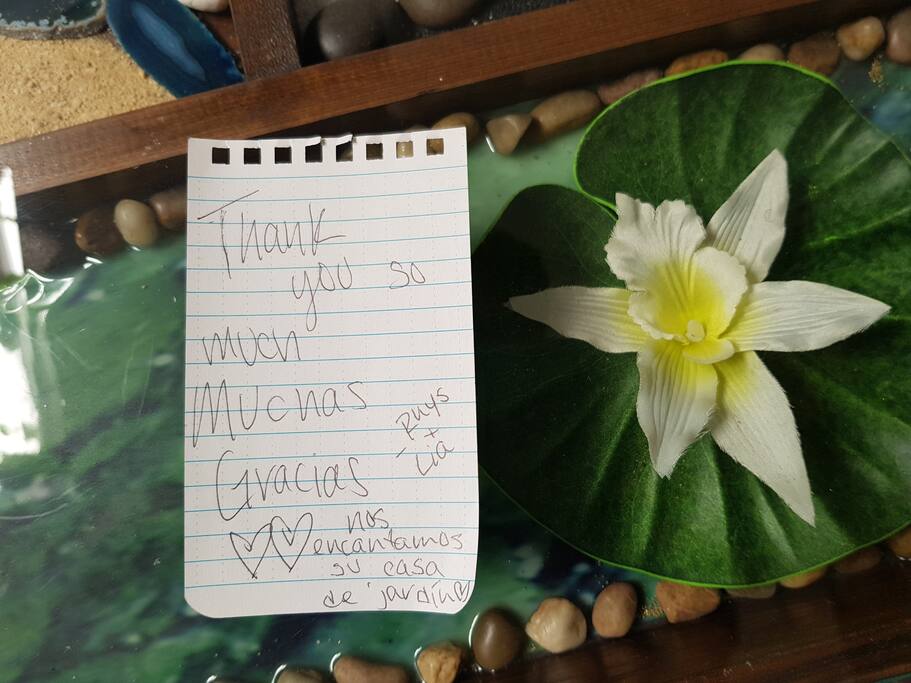 Thank
you so
much
Muchas
Gracias
- Rhys
+
Lia
nos
encantamos
su casa
de jardín